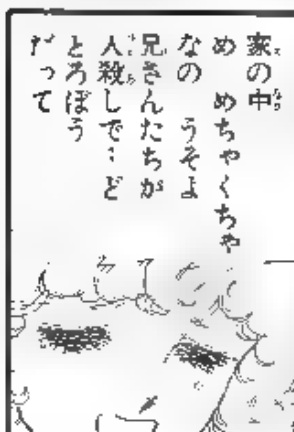 家の中
め　めちゃくちゃ
なの　うそよ
兄さんたちが
人殺しで…ど
とろぼう
だって